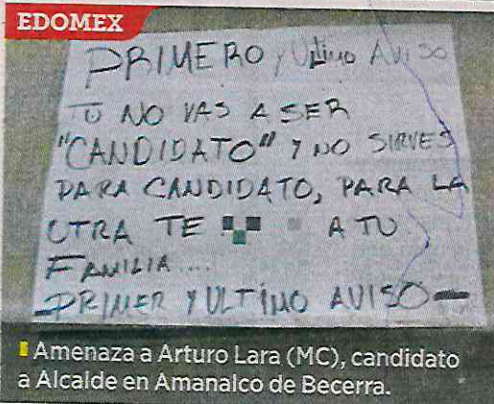 EDOMEX
PRIMERO y Ultimo AVISO
TU NO VAS A SER
"CANDIDATO" Y NO SIRVES
PARA CANDIDATO, PARA LA
OTRA TE A TU
FAMILIA...
PRIMER Y ULTIMO AVISO
Amenaza a Arturo Lara (MC), candidato
a Alcalde en Amanalco de Becerra.